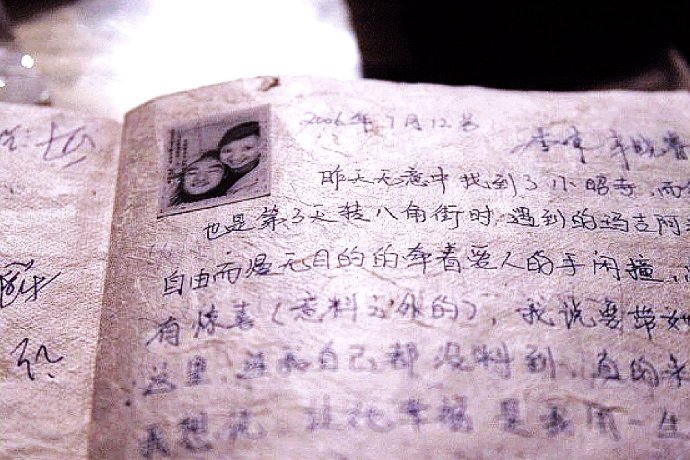 2006年7月12号
昨天无意中找到了小昭寺,而
也是第3天转八角街时,遇到的玛吉阿
自由而漫无目的的牵着爱人的手闲撞,
有惊喜(意料之外的),我说要带她
这里,连我自己都没料到,真的来
我想说 让她幸福 是我用一生